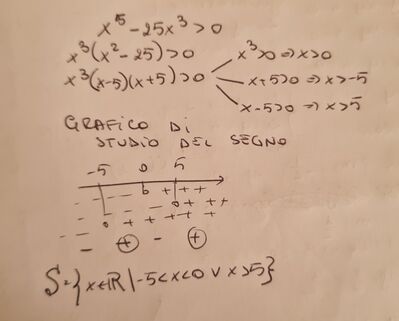 x⁵ - 25x³ > 0
x³(x² - 25) > 0
x³(x-5)(x+5) > 0
x³>0 => x>0
x+5>0 => x>-5
x-5>0 => x>5
GRAFICO DI
STUDIO DEL SEGNO
-5 0 5
- - - o + + +
- - - - - o + +
- - o + + + + + +
- + - +
S={x∈ℝ | -5<x<0 ∨ x>5}